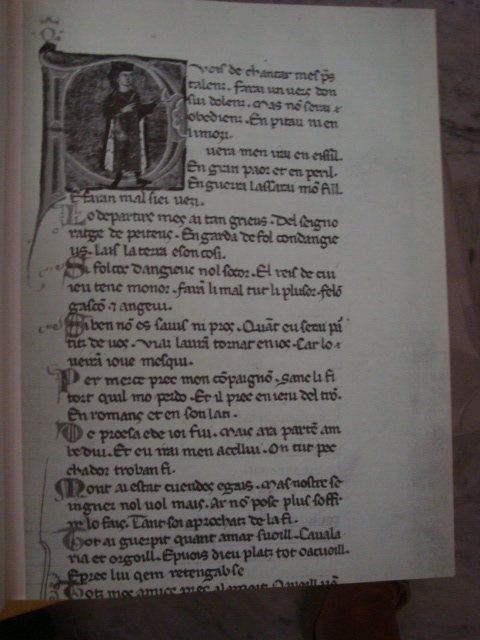 vois de chantar mes pͥs
talenz. farai un vers don
sui dolenz. Mas nō serai
obedienz. En pitau ni en
limozi.
uera men irai en eissil.
En gran paor et en peril.
En guerra laissarai mō fill.
E faran mal siei uezi.
Lo departirs mes ai tan grieus. Del seigno
ratge de peiteus. En garda de fol condangie
us. lais la terra e son cosi.
Si folcos dangieus nol socor. El reis de cui
ieu tenc monor. faran li mal tut li plusor. felō
gascō angeui.
Si ben nō es sauis ni pros. Quāt eu serai pā
titz de uos. Viaz lauran tornat en ios. Car lo
ueirā ioue mesqui.
Per merce prec mon cōpaignō. Sanc li fi
tort quil mo perdo. Et il prec en iezu del trō.
En romanz et en son lati.
De proesa e de ioi fui. Mais ara partē am
bedui. Et eu irai men acellui. On tut pec
chador troban fi.
Mout ai estat cuendes e gais. Mas nostre se
ingner nol uol mais. Ar nō pose plus soffr
ir lo fais. Tant soi aprochatz de la fi.
Tot ai guerpit quant amar suoill. Cauala
ria et orgoill. E puois dieu platz tot o acuoill.
E prec lui qem retengab se
Totz mos amics prec